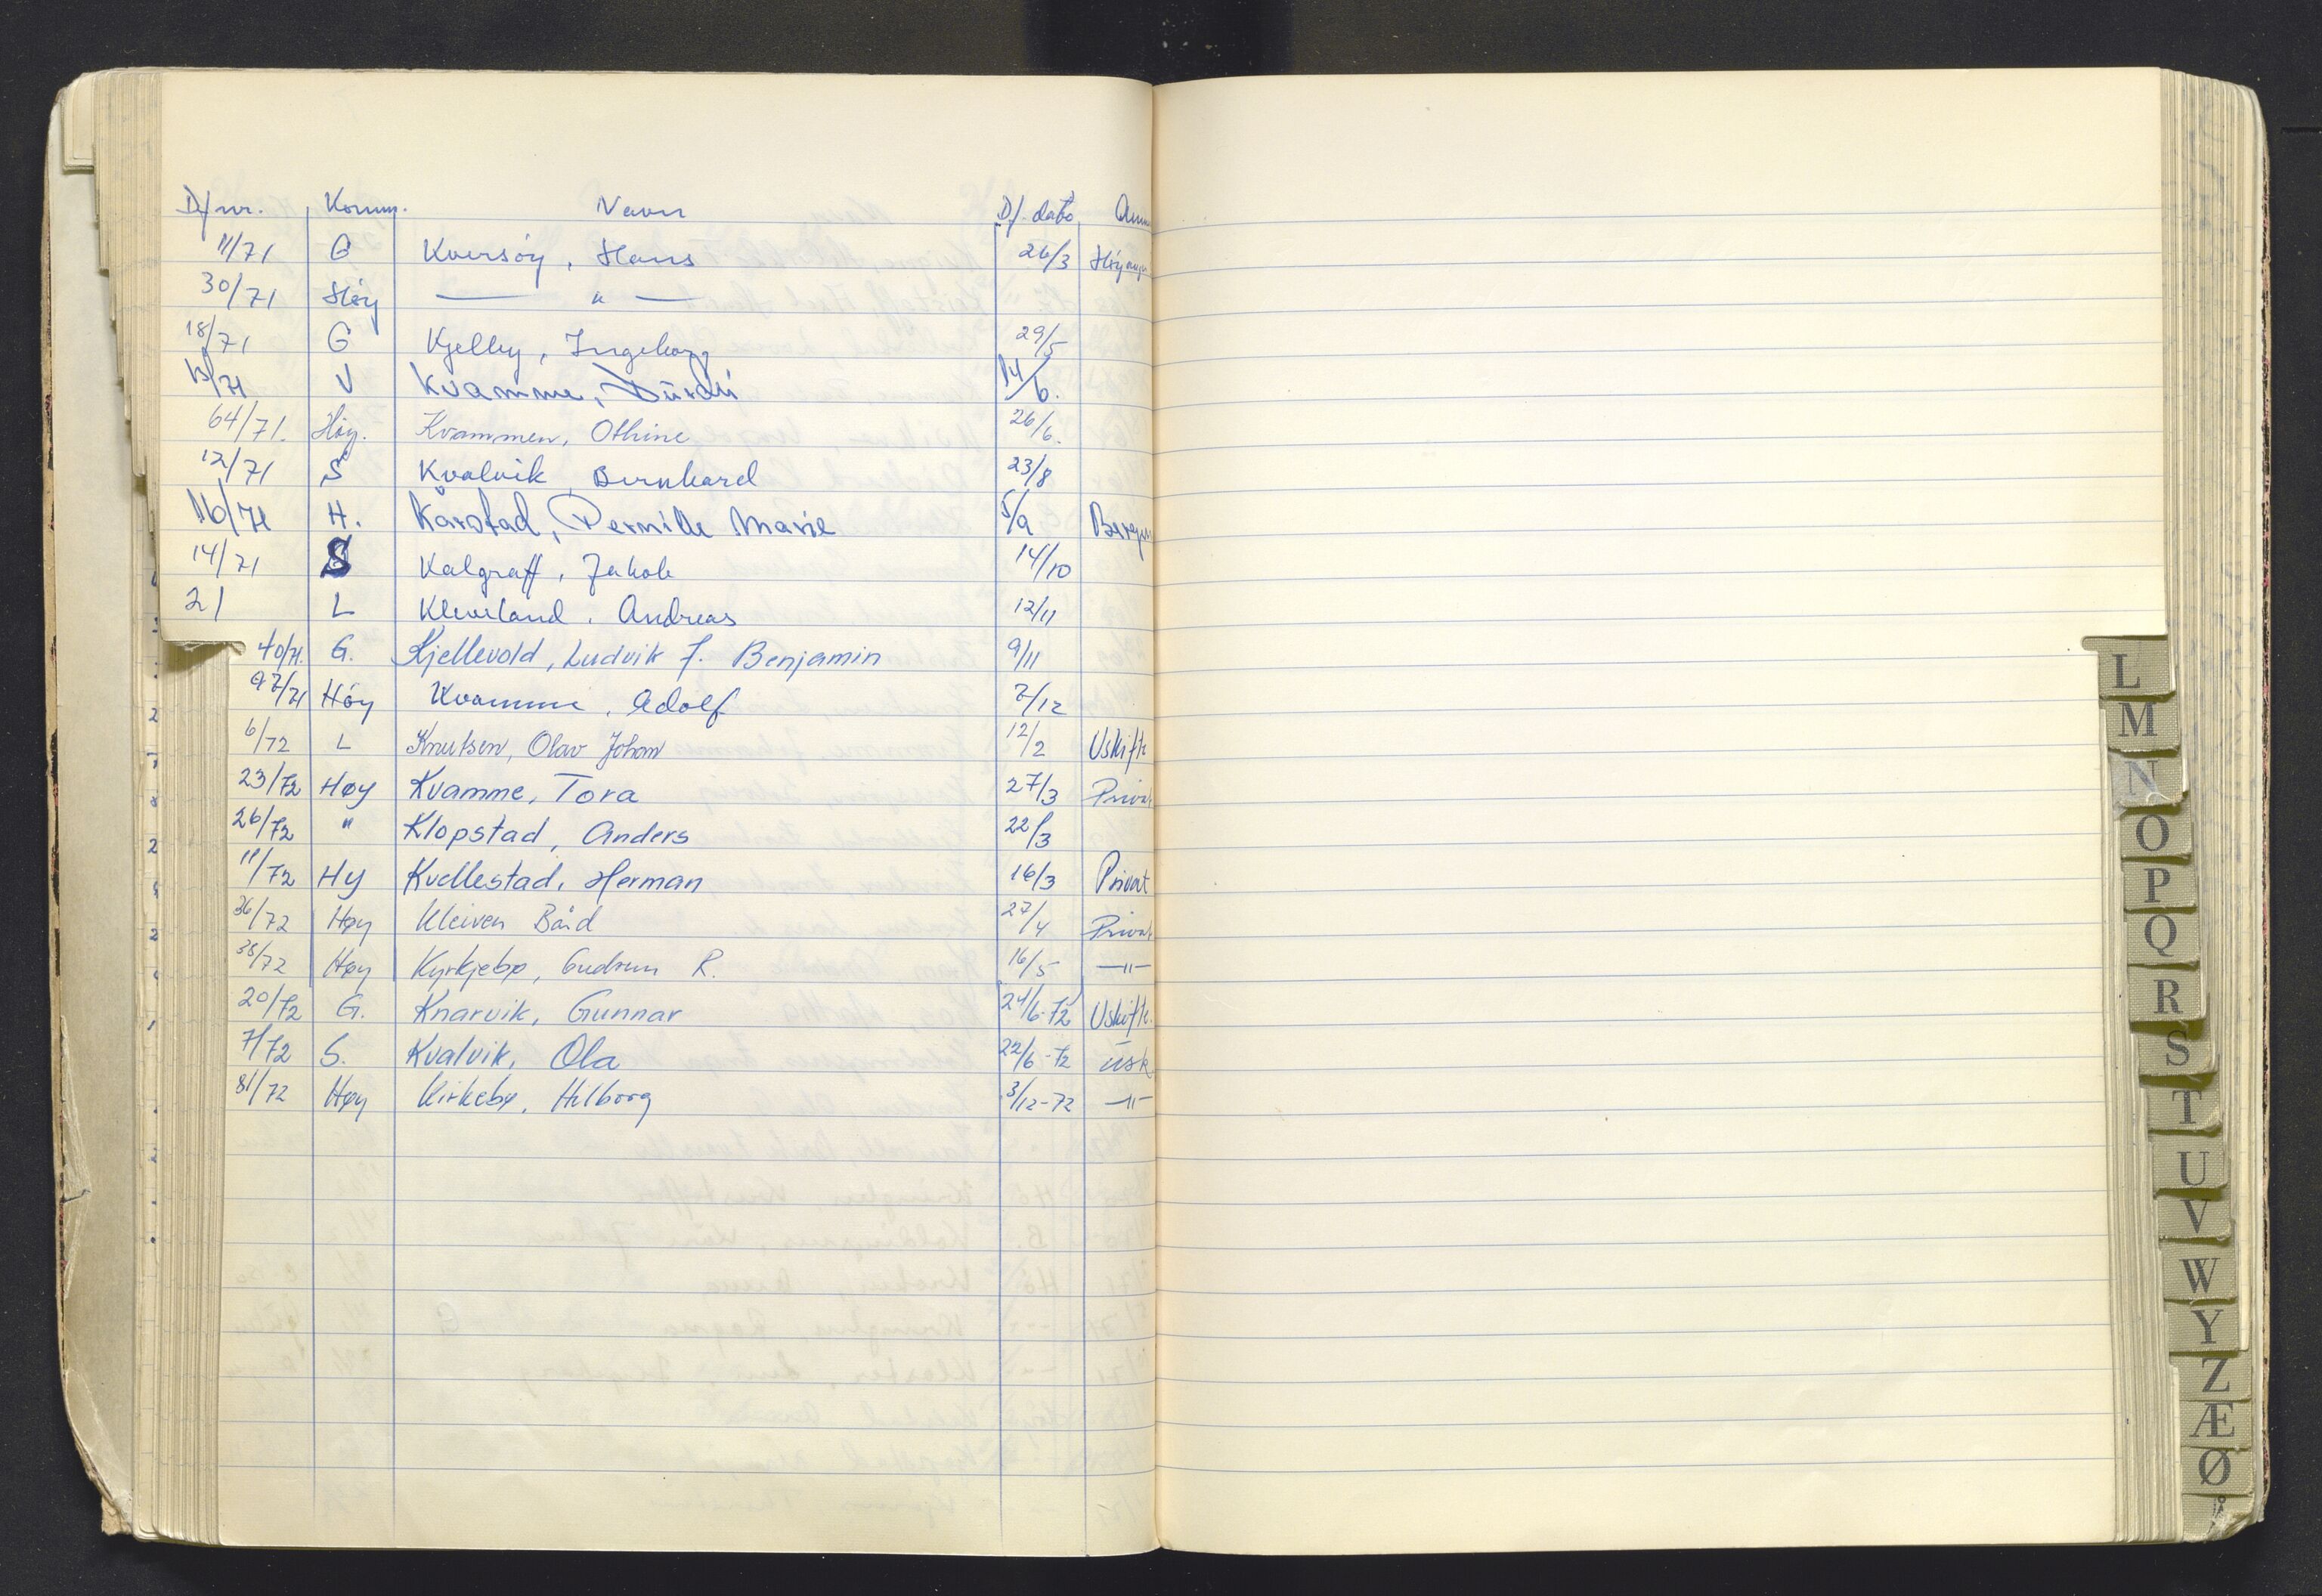 D/nr. Komm. Navn D/. dato
11/71 G Kversöy, Hans 26/3
30/71 Höy — " —
18/71 G Kjelby, Ingeborg 29/5
13/71 V Kvamme, 14/6.
64/71. Höy. Kvammen, Othine 26/6.
12/71 S Kvalvik, Bernhard 23/8
16/71 H. Kårstad, Pernille Marie 5/9 Bergen
14/71 S Kalgraff, Jakob 14/10
21 L Kleveland, Andreas 12/11
40/71. G. Kjellevold, Ludvik J. Benjamin 9/11
97/71 Höy Kvamme, Adolf 7/12
6/72 L Knutsen, Olav Johan 12/2 Uskifte
23/72 Høy Kvamme, Tora 27/3 Privat
26/72 " Klopstad, Anders 22/3
11/72 Hy Kvellestad, Herman 16/3 Privat
36/72 Høy Kleiven Bård 27/4 Privat
38/72 Høy Kyrkjebø, Gudrun R. 16/5 —"—
20/72 G. Knarvik, Gunnar 24/6-72 Uskifte.
7/72 S. Kvalvik, Ola 22/6-72 Usk
81/72 Høy Kirkebø, Hilborg 3/12-72 —"—
L
M
N
O
P
Q
R
S
T
U
V
W
Y
Z
Æ
Ø
Å